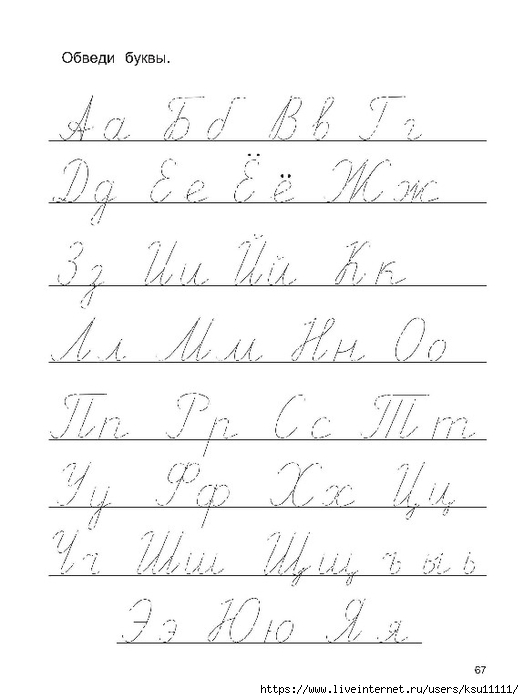 Обведи буквы.
Аа Бб Вв Гг
Дд Ее Ёё Жж
Зз Ии Йй Кк
Лл Мм Нн Оо
Пп Рр Сс Тт
Уу Фф Хх Цц
Чч Шш Щщ ъ ы ь
Ээ Юю Яя
67
https://www.liveinternet.ru/users/ksu11111/